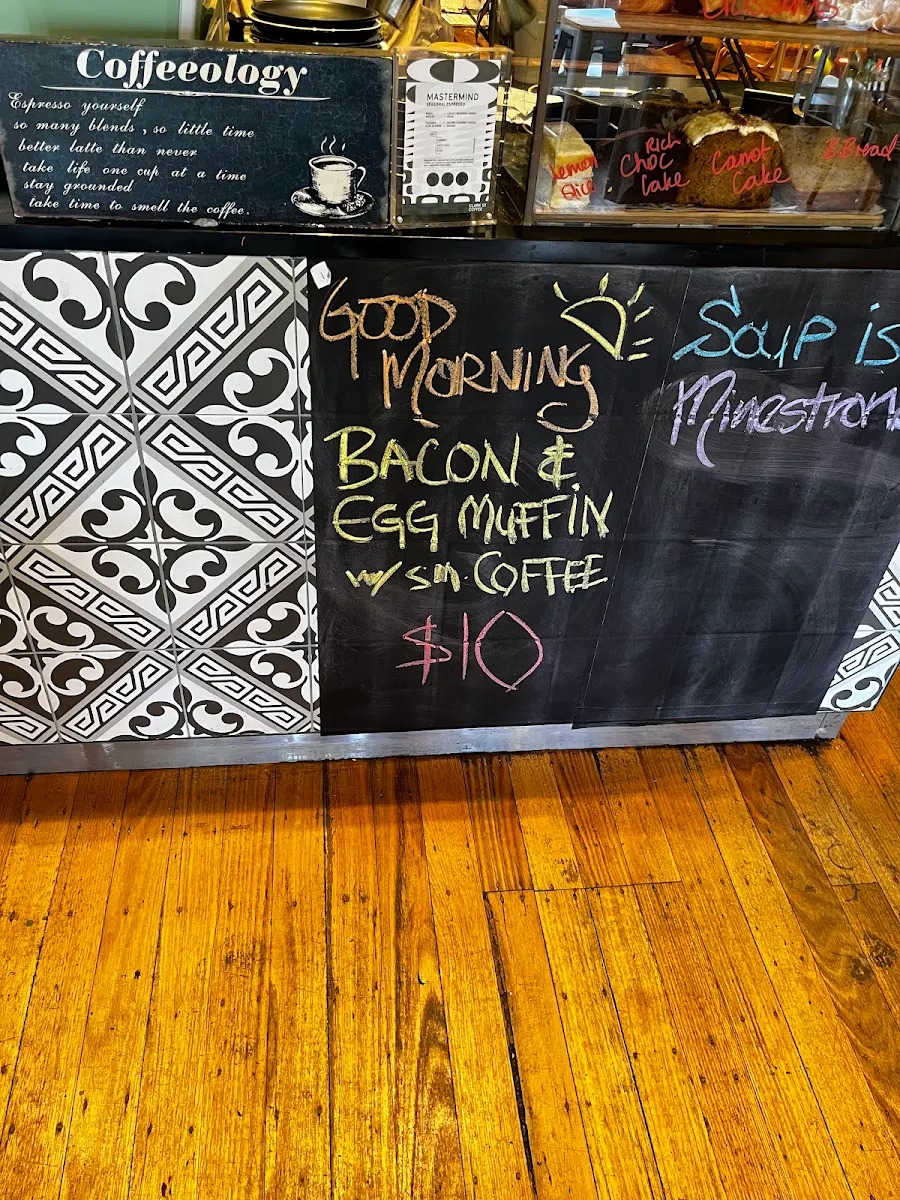 Coffeeology
Espresso yourself
so many blends , so little time
better latte than never
take life one cup at a time
stay grounded
take time to smell the coffee.
MASTERMIND
SEASONAL ESPRESSO
CLARK ST
COFFEE
Rich
Choc
Cake
Carrot
Cake
B.Bread
Slice
GOOD
MORNING
BACON &
EGG MUFFIN
w/ sm. COFFEE
$10
Soup is
Minestron